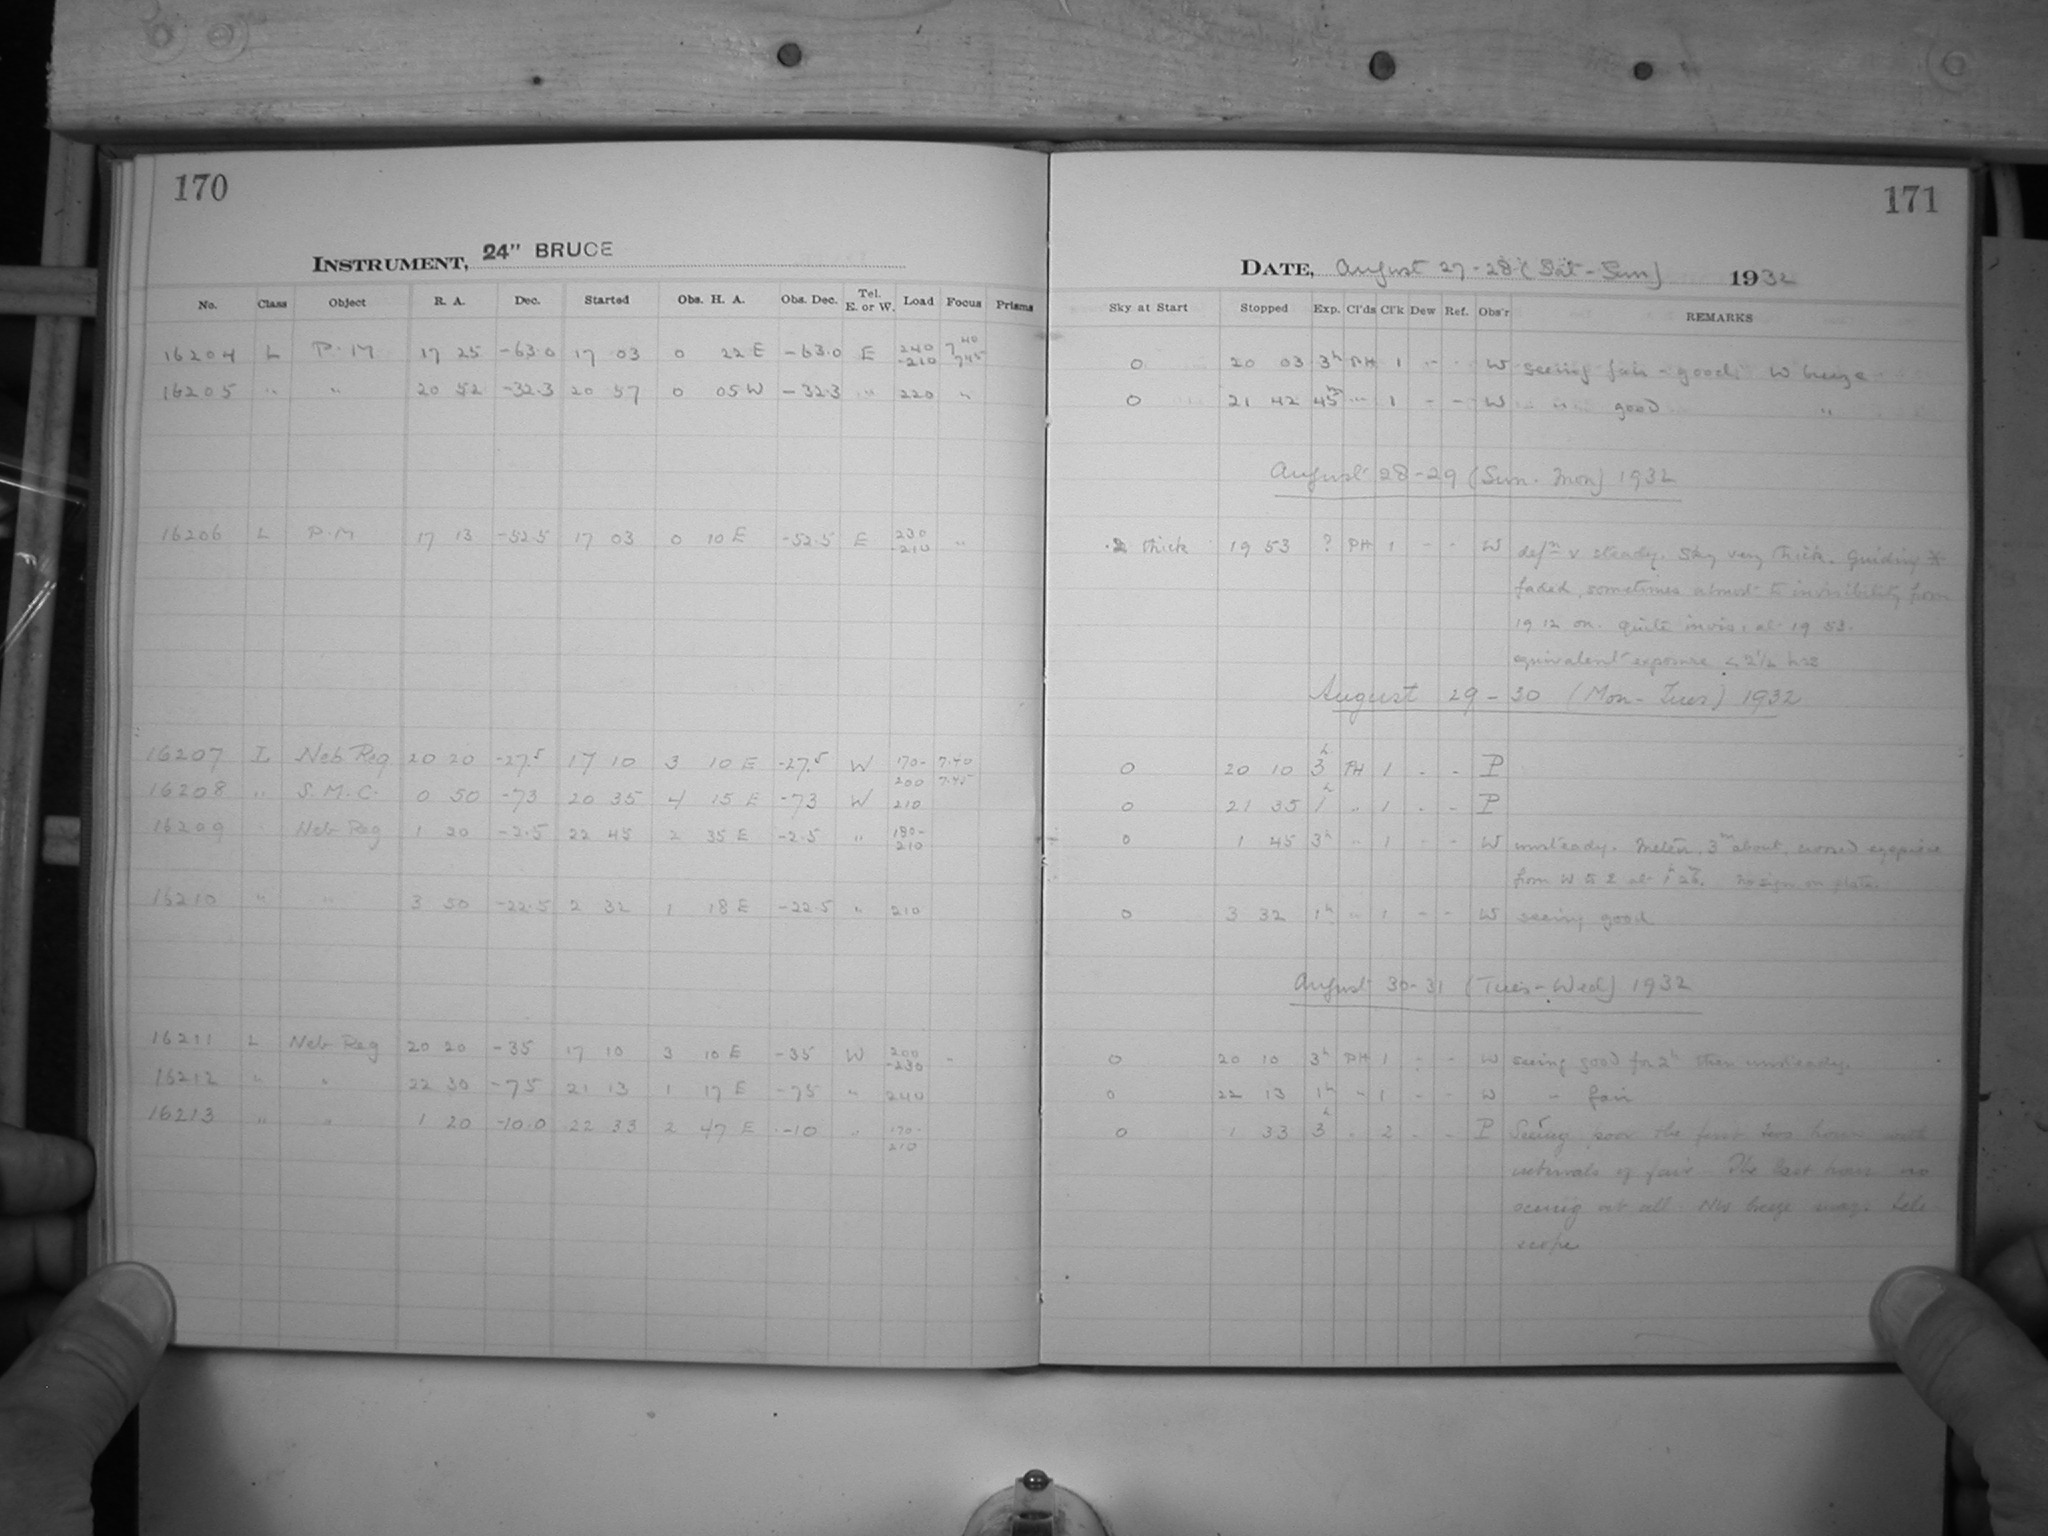 170
INSTRUMENT, 24" BRUCE
No. Class Object R. A. Dec. Started Obs. H. A. Obs. Dec. Tel. E. or W. Load Focus Prisms
16204 L P.M 17 25 -63.0 17 03 0 22 E -63.0 E 240 -210 7 40 745
16205 " " 20 52 -32.3 20 57 0 05 W -32.3 " 220 "
16206 L P.M 17 13 -52.5 17 03 0 10 E -52.5 E 230 -210 "
16207 L Neb Reg 20 20 -27.5 17 10 3 10 E -27.5 W 170- 200 7.40 7.45
16208 " S.M.C. 0 50 -73 20 35 4 15 E -73 W 210
16209 " Neb Reg 1 20 -2.5 22 45 2 35 E -2.5 " 180- 210
16210 " " 3 50 -22.5 2 32 1 18 E -22.5 " 210
16211 L Neb Reg 20 20 -35 17 10 3 10 E -35 W 200 -230 "
16212 " " 22 30 -75 21 13 1 17 E -75 " 240
16213 " " 1 20 -10.0 22 33 2 47 E -10 " 170- 210
171
DATE, August 27-28 (Sat-Sun) 1932
Sky at Start Stopped Exp. Cl'ds Cl'k Dew Ref. Obs'r REMARKS
0 20 03 3h PH 1 - - W seeing fair - good. W breeze
0 21 42 45m " 1 - - W " good "
August 28-29 (Sun. Mon) 1932
.2 thick 19 53 ? PH 1 - - W defn v steady. Sky very thick. Guiding *
faded, sometimes almost to invisibility from
19 12 on. Quite invis. at 19 53.
equivalent exposure < 2½ hrs
August 29-30 (Mon-Tues) 1932
0 20 10 3h PH 1 - - P
0 21 35 1h " 1 - - P
0 1 45 3h " 1 - - W unsteady. Meteor, 3m about, crossed eyepiece
from W to E at No sign on plate.
0 3 32 1h " 1 - - W seeing good
August 30-31 (Tues-Wed) 1932
0 20 10 3h PH 1 - - W seeing good for 2h then unsteady.
0 22 13 1h " 1 - - W " fair
0 1 33 3h " 2 - - P Seeing poor the first two hours with
intervals of fair. The last hour no
seeing at all. NW breeze tele-
scope